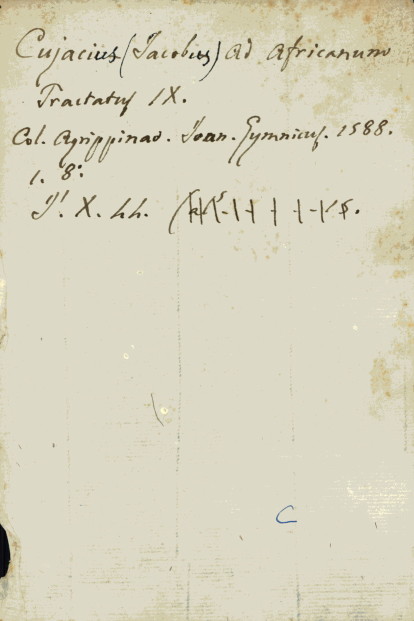 Cujacius (Jacobus) Ad Africanum
Tractatus IX.
Col. Agrippinae. Joan. Gymnicus. 1588.
1. 8.º
X. 44.
C